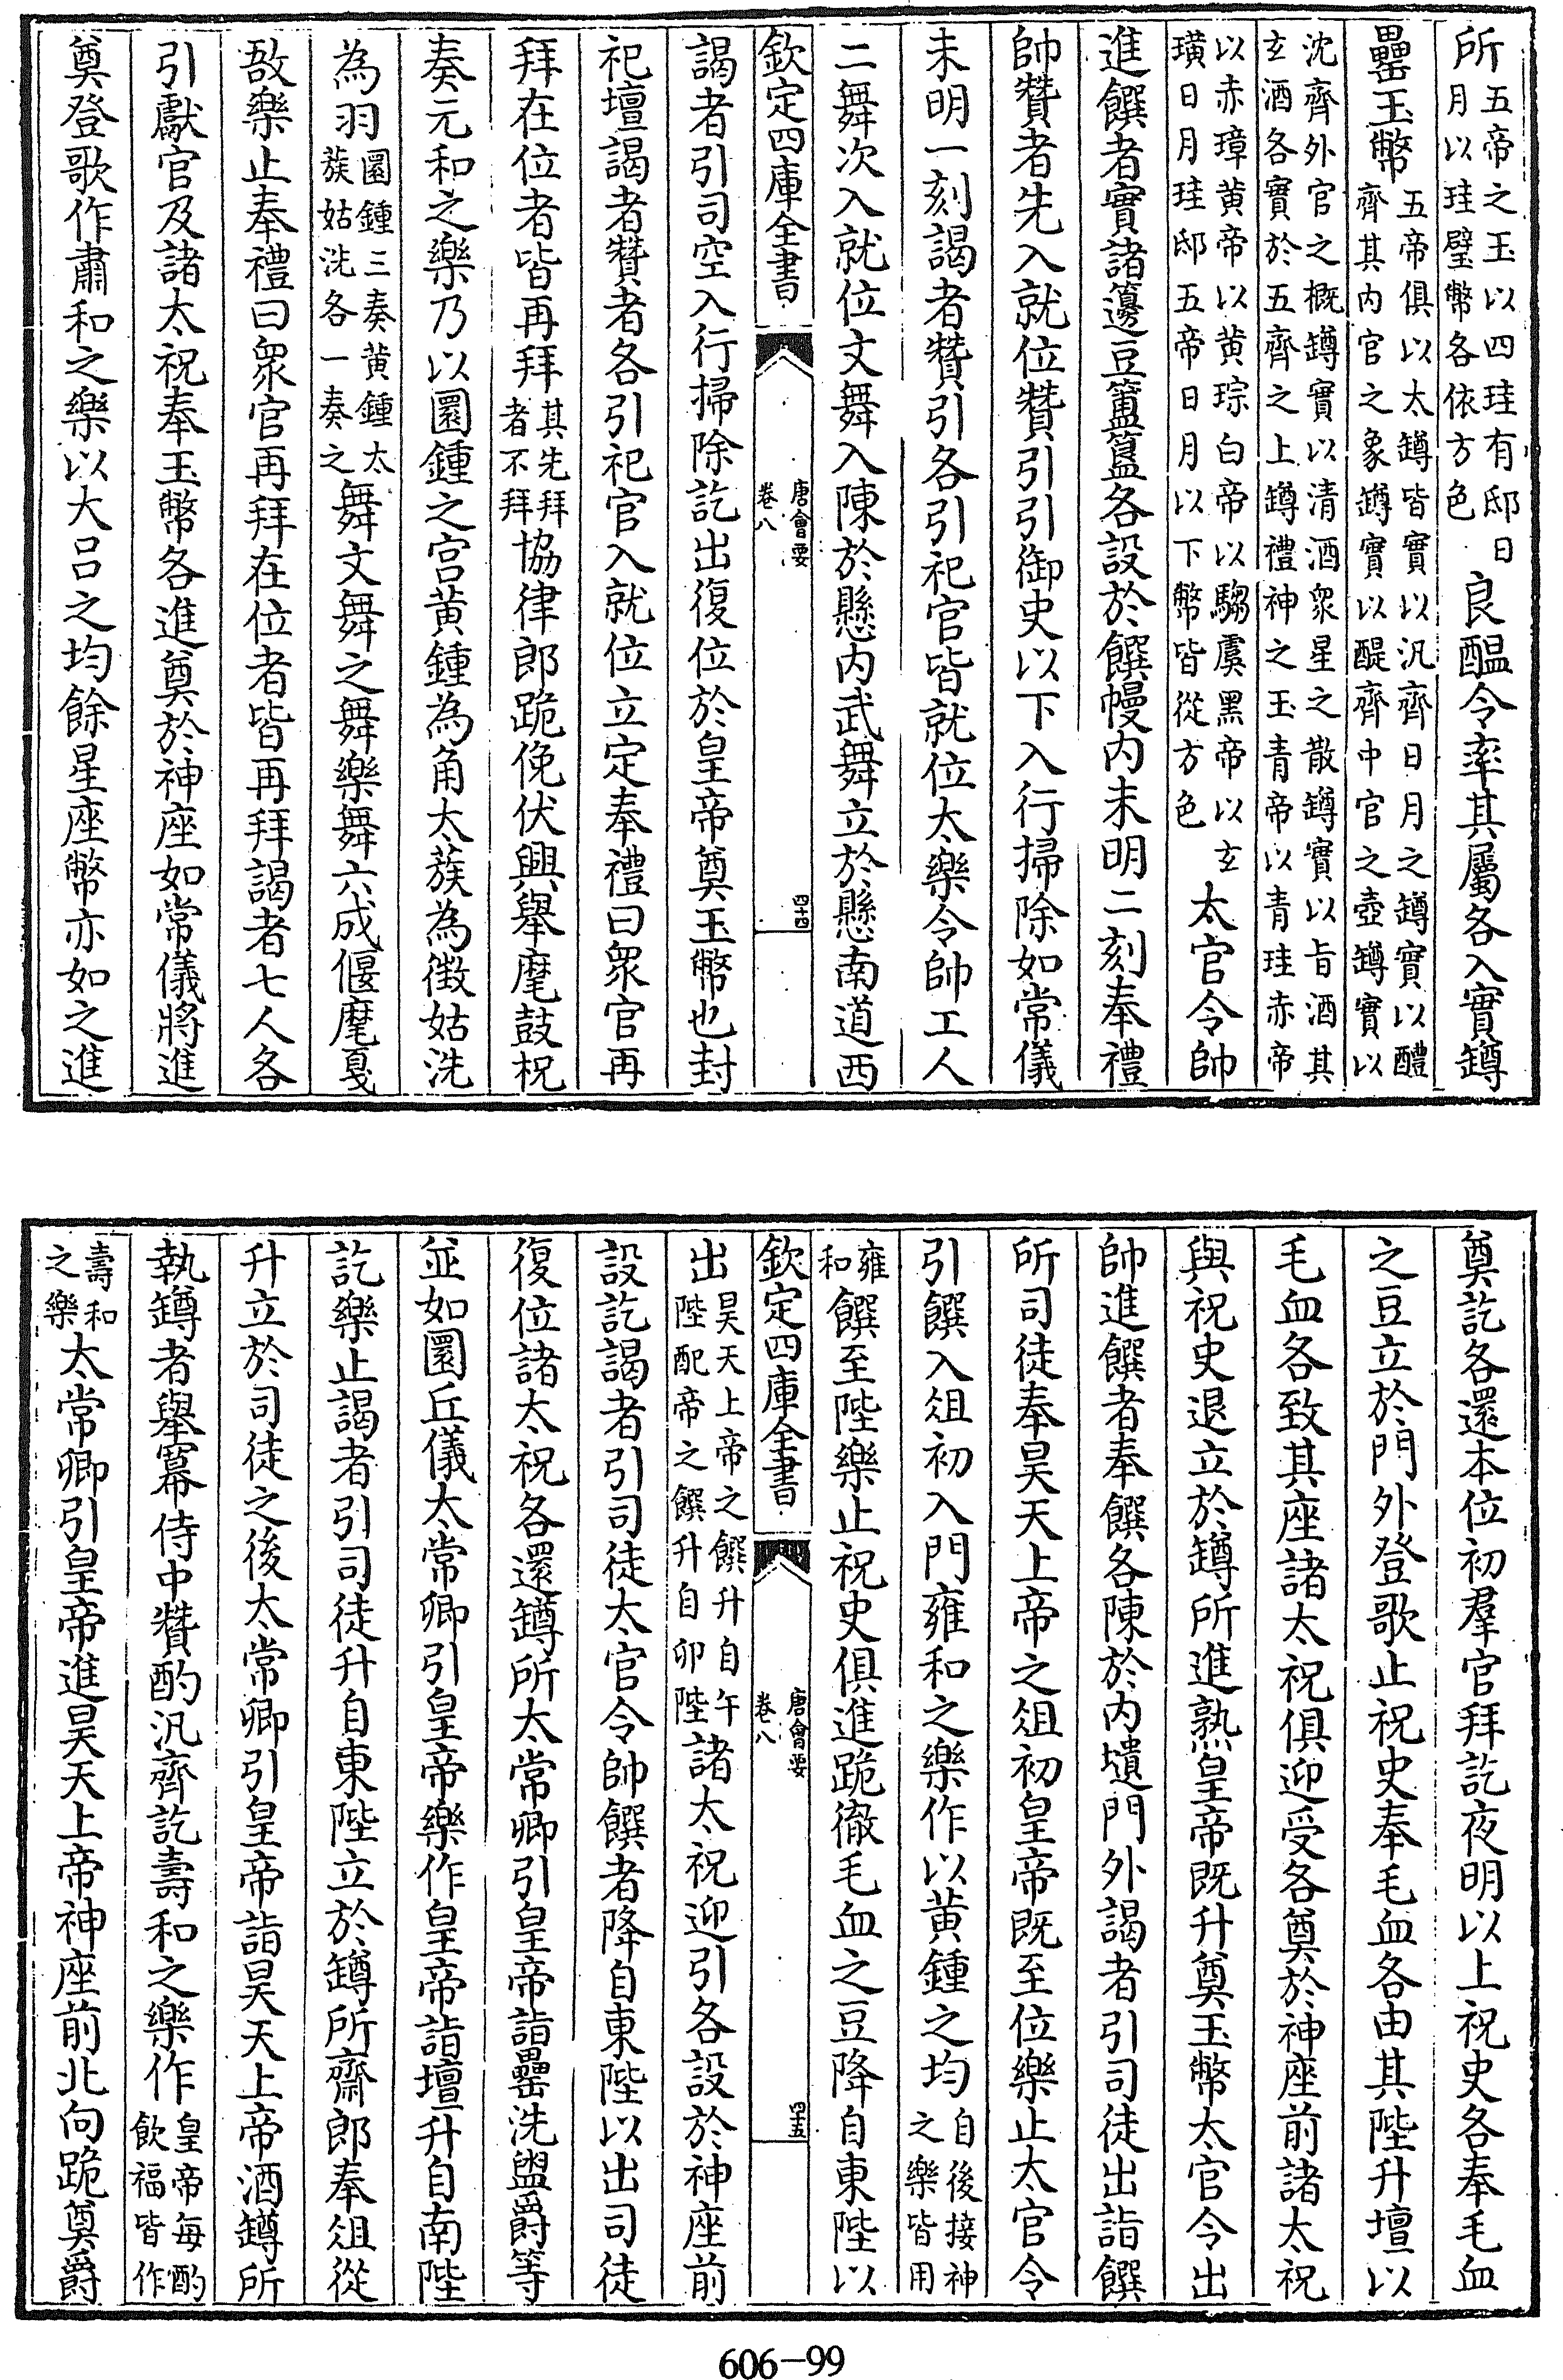 所五帝之玉以四珪有邸日月以珪璧幣各依方色良醖令率其屬各入實罇
罍玉幣五帝俱以太罇皆實以汎齊日月之罇實以醴齊其内官之象罇實以醍齊中官之壺罇實以
沈齊外官之概罇實以清酒衆星之散罇實以旨酒其玄酒各實於五齊之上罇禮神之玉青帝以青珪赤帝
以赤璋黄帝以黄琮白帝以騶虞黑帝以玄璜日月珪邸五帝日月以下幣皆從方色太官令帥
進饌者實諸籩豆簠簋各設於饌幔内未明二刻奉禮
帥贊者先入就位贊引引御史以下入行掃除如常儀
未明一刻謁者贊引各引祀官皆就位太樂令帥工人
二舞次入就位文舞入陳於懸内武舞立於懸南道西
欽定四庫全書 唐會要 卷八 四十四
謁者引司空入行掃除訖出復位於皇帝奠玉幣也封
祀壇謁者贊者各引祀官入就位立定奉禮曰衆官再
拜在位者皆再拜其先拜者不拜協律郎跪俛伏興舉麾鼓柷
奏元和之樂乃以圜鍾之宫黄鍾為角太蔟為徵姑洗
為羽圜鍾三奏黄鍾太蔟姑洗各一奏之舞文舞之舞樂舞六成偃麾戛
敔樂止奉禮曰衆官再拜在位者皆再拜謁者七人各
引獻官及諸太祝奉玉幣各進奠於神座如常儀將進
奠登歌作肅和之樂以大吕之均餘星座幣亦如之進
奠訖各還本位初羣官拜訖夜明以上祝史各奉毛血
之豆立於門外登歌止祝史奉毛血各由其陛升壇以
毛血各致其座諸太祝俱迎受各奠於神座前諸太祝
與祝史退立於罇所進熟皇帝既升奠玉幣太官令出
帥進饌者奉饌各陳於内壝門外謁者引司徒出詣饌
所司徒奉昊天上帝之俎初皇帝既至位樂止太官令
引饌入俎初入門雍和之樂作以黄鍾之均自後接神之樂皆用
雍和饌至陛樂止祝史俱進跪徹毛血之豆降自東陛以
欽定四庫全書 唐會要 卷八 四十五
出昊天上帝之饌升自午陛配帝之饌升自卯陛諸太祝迎引各設於神座前
設訖謁者引司徒太官令帥饌者降自東陛以出司徒
復位諸太祝各還罇所太常卿引皇帝詣罍洗盥爵等
並如圜丘儀太常卿引皇帝樂作皇帝詣壇升自南陛
訖樂止謁者引司徒升自東陛立於罇所齋郎奉俎從
升立於司徒之後太常卿引皇帝詣昊天上帝酒罇所
執罇者舉冪侍中贊酌汎齊訖壽和之樂作皇帝每酌飲福皆作
壽和之樂太常卿引皇帝進昊天上帝神座前北向跪奠爵
606-99